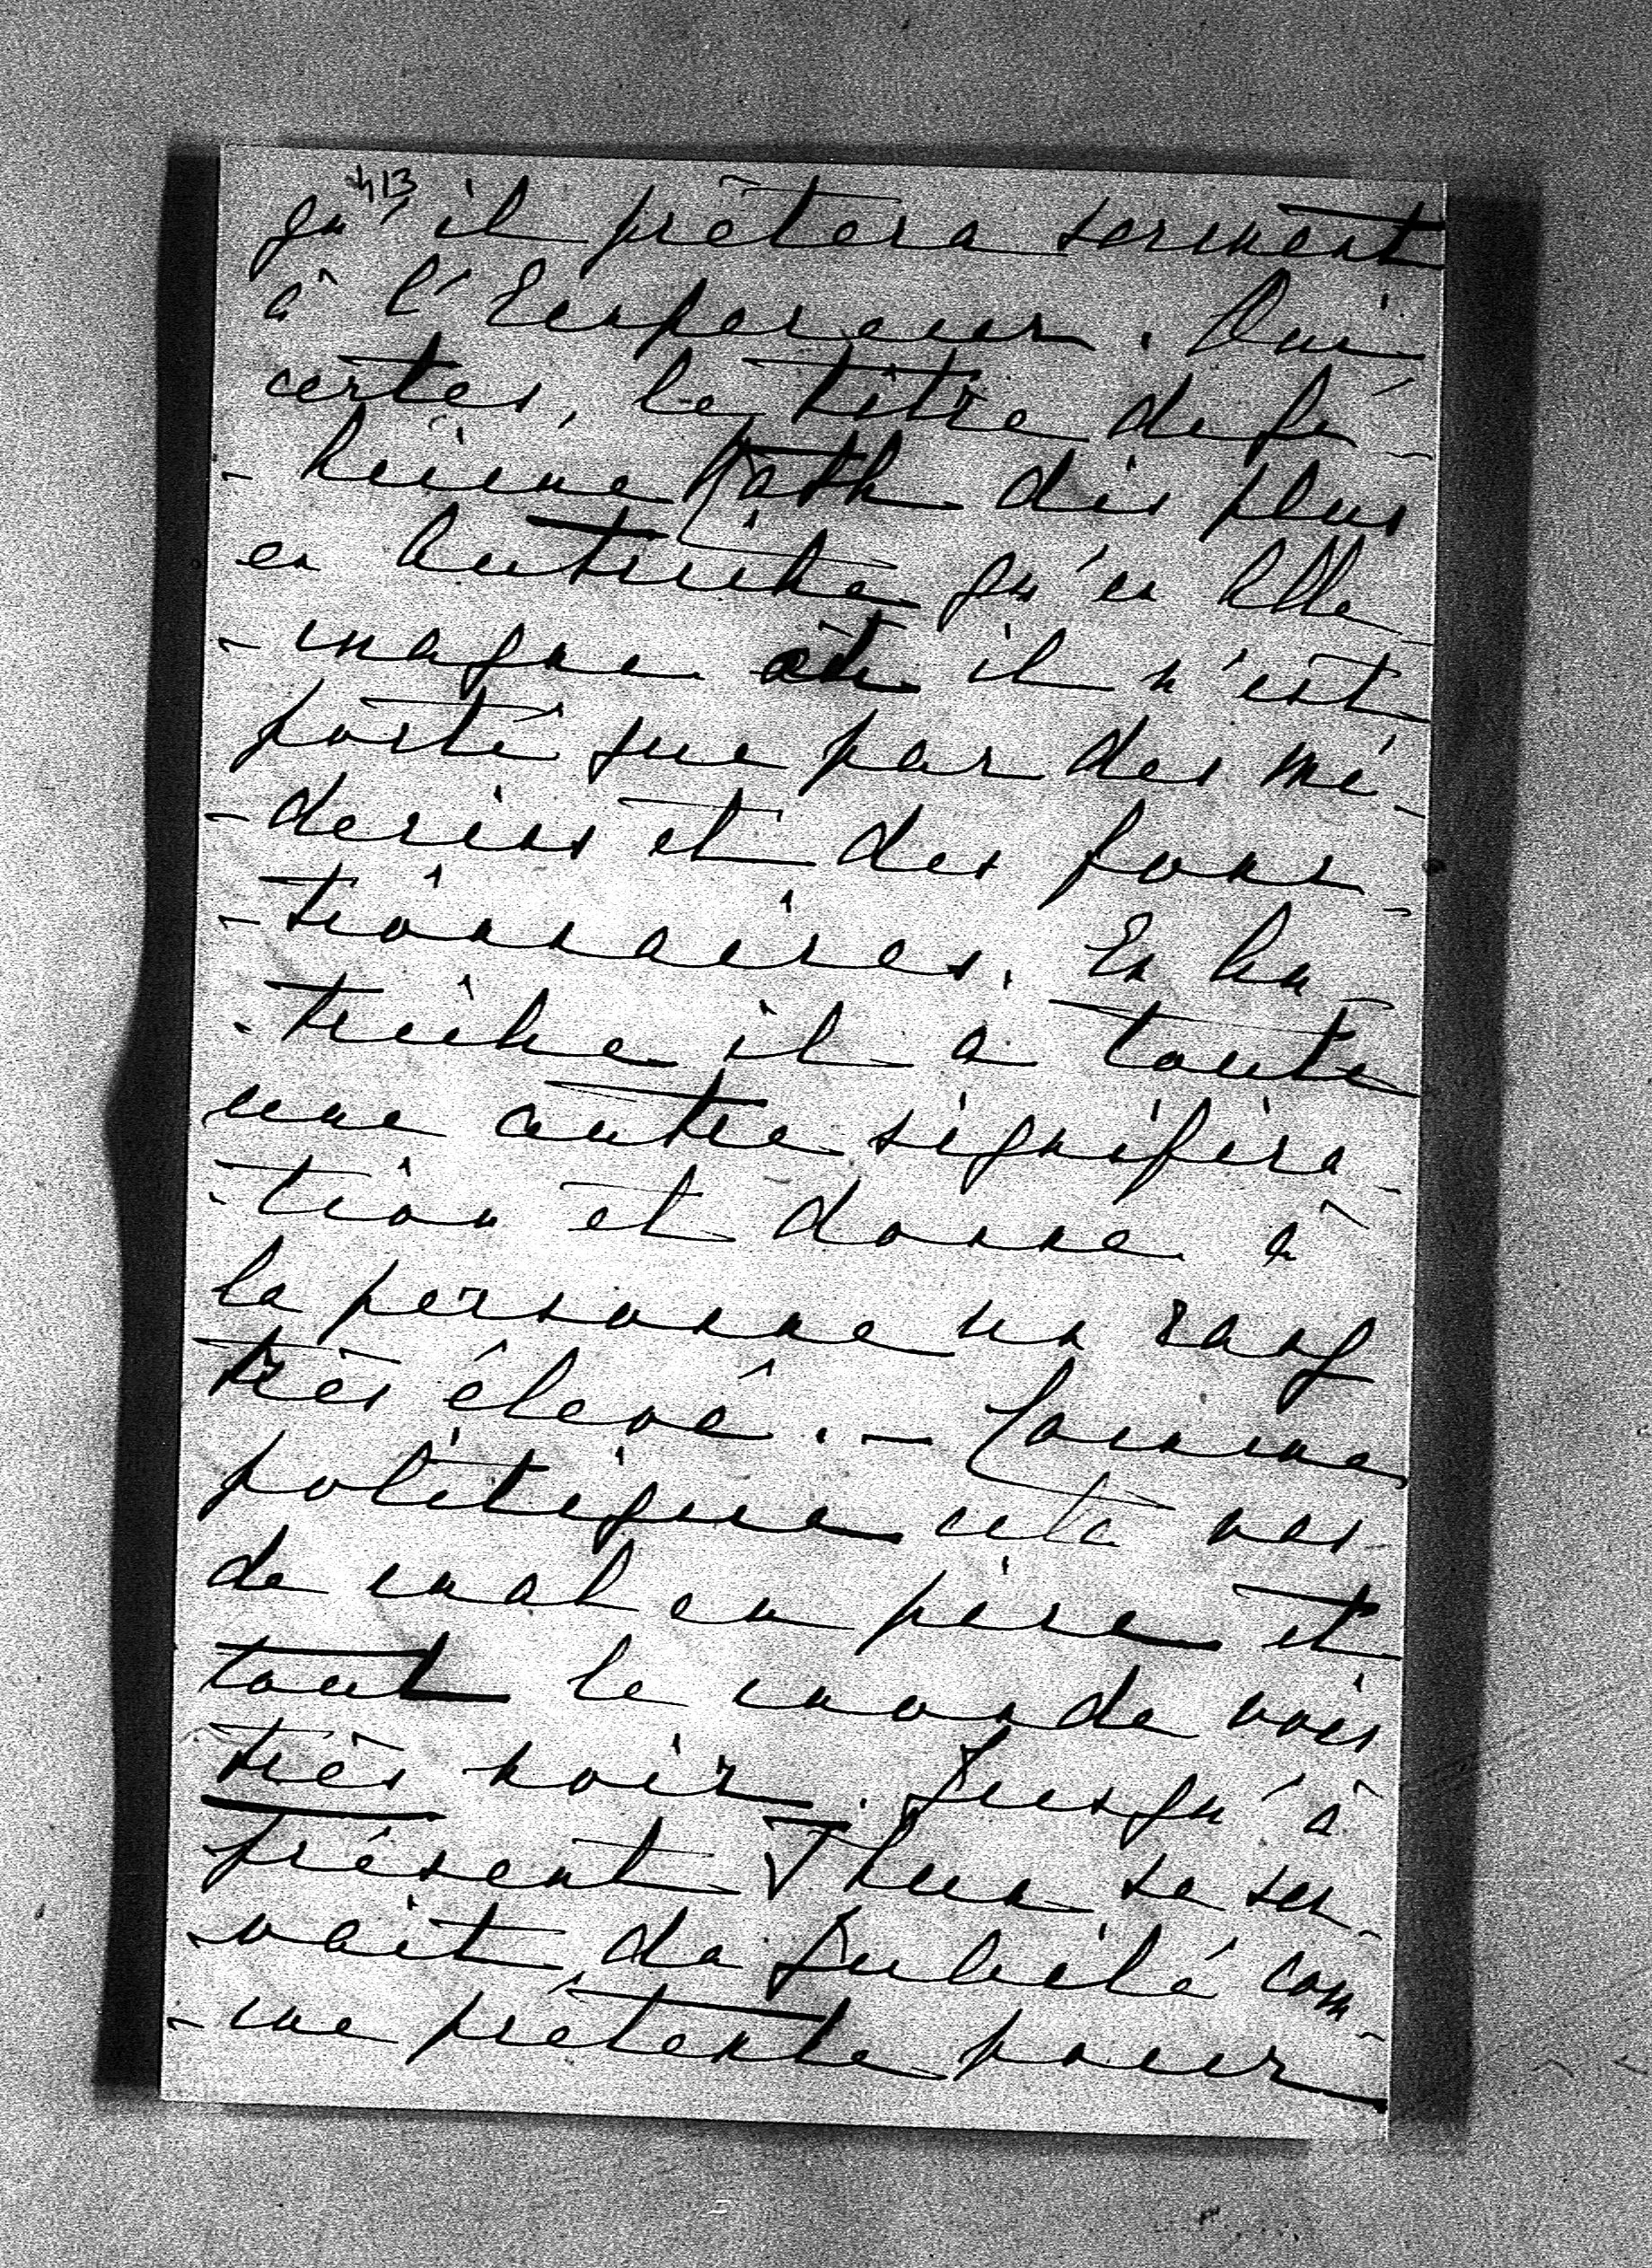 413
qu'il prêtera serment
à l'Empereur. Oui
certes, le titre de Ge-
-heime Rath dis plus
en Autriche qu'en Alle-
-magne où il n'est
porté que par des mé-
-decins et des fonc-
-tionnaires. En Au-
-triche il a toute
une autre significa-
-tion et donne à
la personne un rang
très élevé. — Comme
politique cela va
de mal en pire et
tout le monde vois
très noir. Jusqu'à
présent Thun se ser-
-vait du Jubilé com-
-me prétexte pour